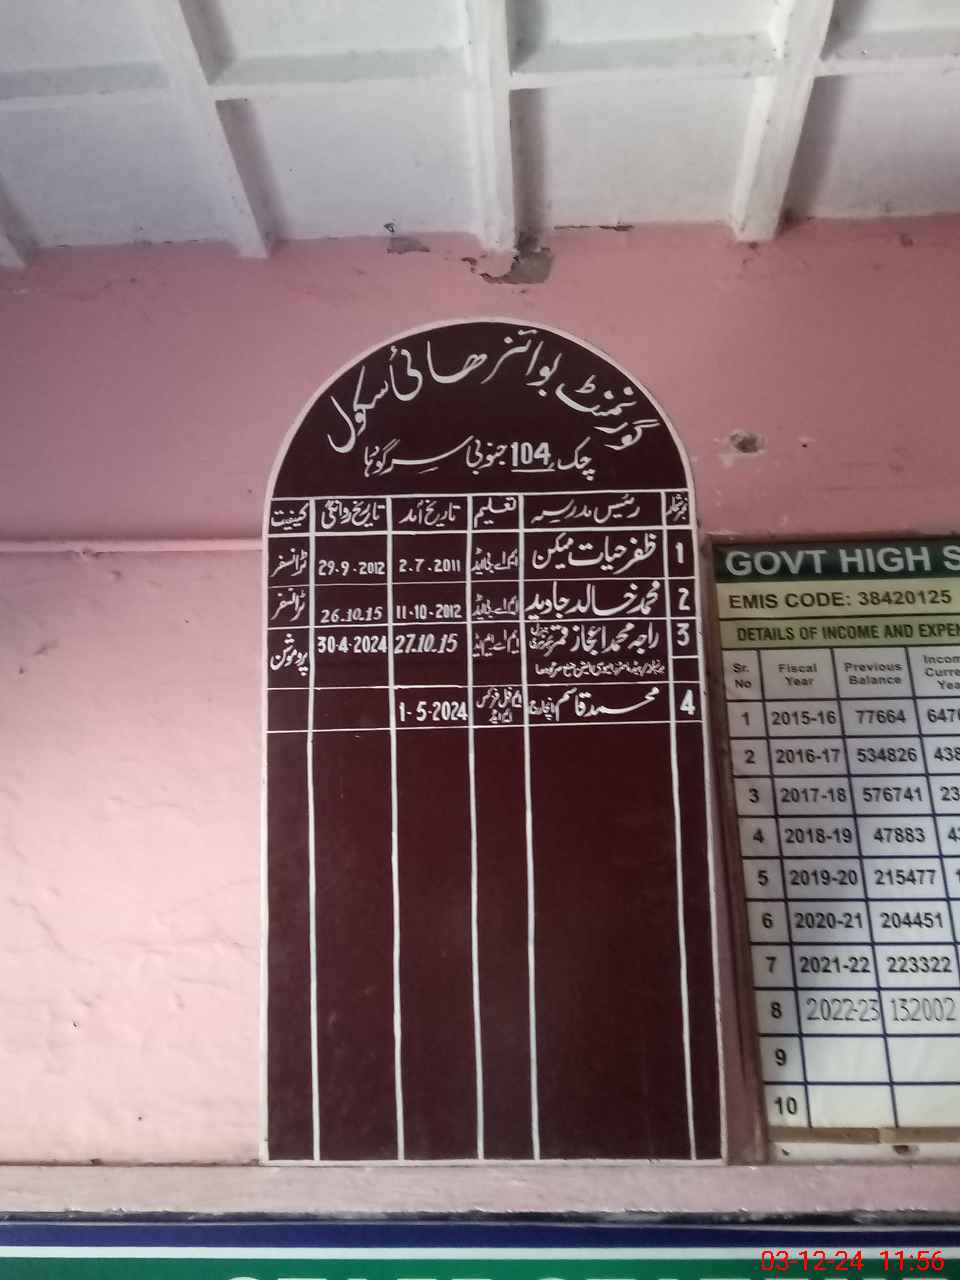 گورنمنٹ بوائز ھائی سکول
چک 104 جنوبی سرگودہا
نمبر شمار رئیس مدرسہ تعلیم تاریخ آمد تاریخ روانگی کیفیت
1 ظفر حیات میکن ایم اے بی ایڈ 2.7.2011 29.9.2012 ٹرانسفر
2 محمد خالد جاوید ایم اے بی ایڈ 11-10-2012 26.10.15 ٹرانسفر
3 راجہ محمد اعجاز قمر ایم اے ایم ایڈ 27.10.15 30-4-2024 پروموشن
4 محمد قاسم انچارج ایم فل فزکس ایم ایڈ 1-5-2024
GOVT HIGH S
EMIS CODE: 38420125
DETAILS OF INCOME AND EXPEN
Sr. No Fiscal Year Previous Balance Incom Curre Yea
1 2015-16 77664 6470
2 2016-17 534826 438
3 2017-18 576741 23
4 2018-19 47883 4
5 2019-20 215477 1
6 2020-21 204451
7 2021-22 223322
8 2022-23 132002
9
10
03-12-24 11:56